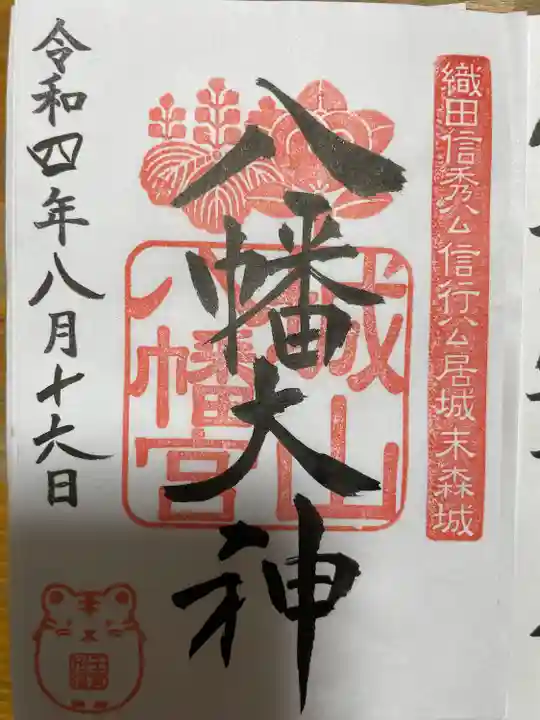 織田信秀公信行公居城 末森城
八幡大神
城山
八幡宮
令和四年八月十六日